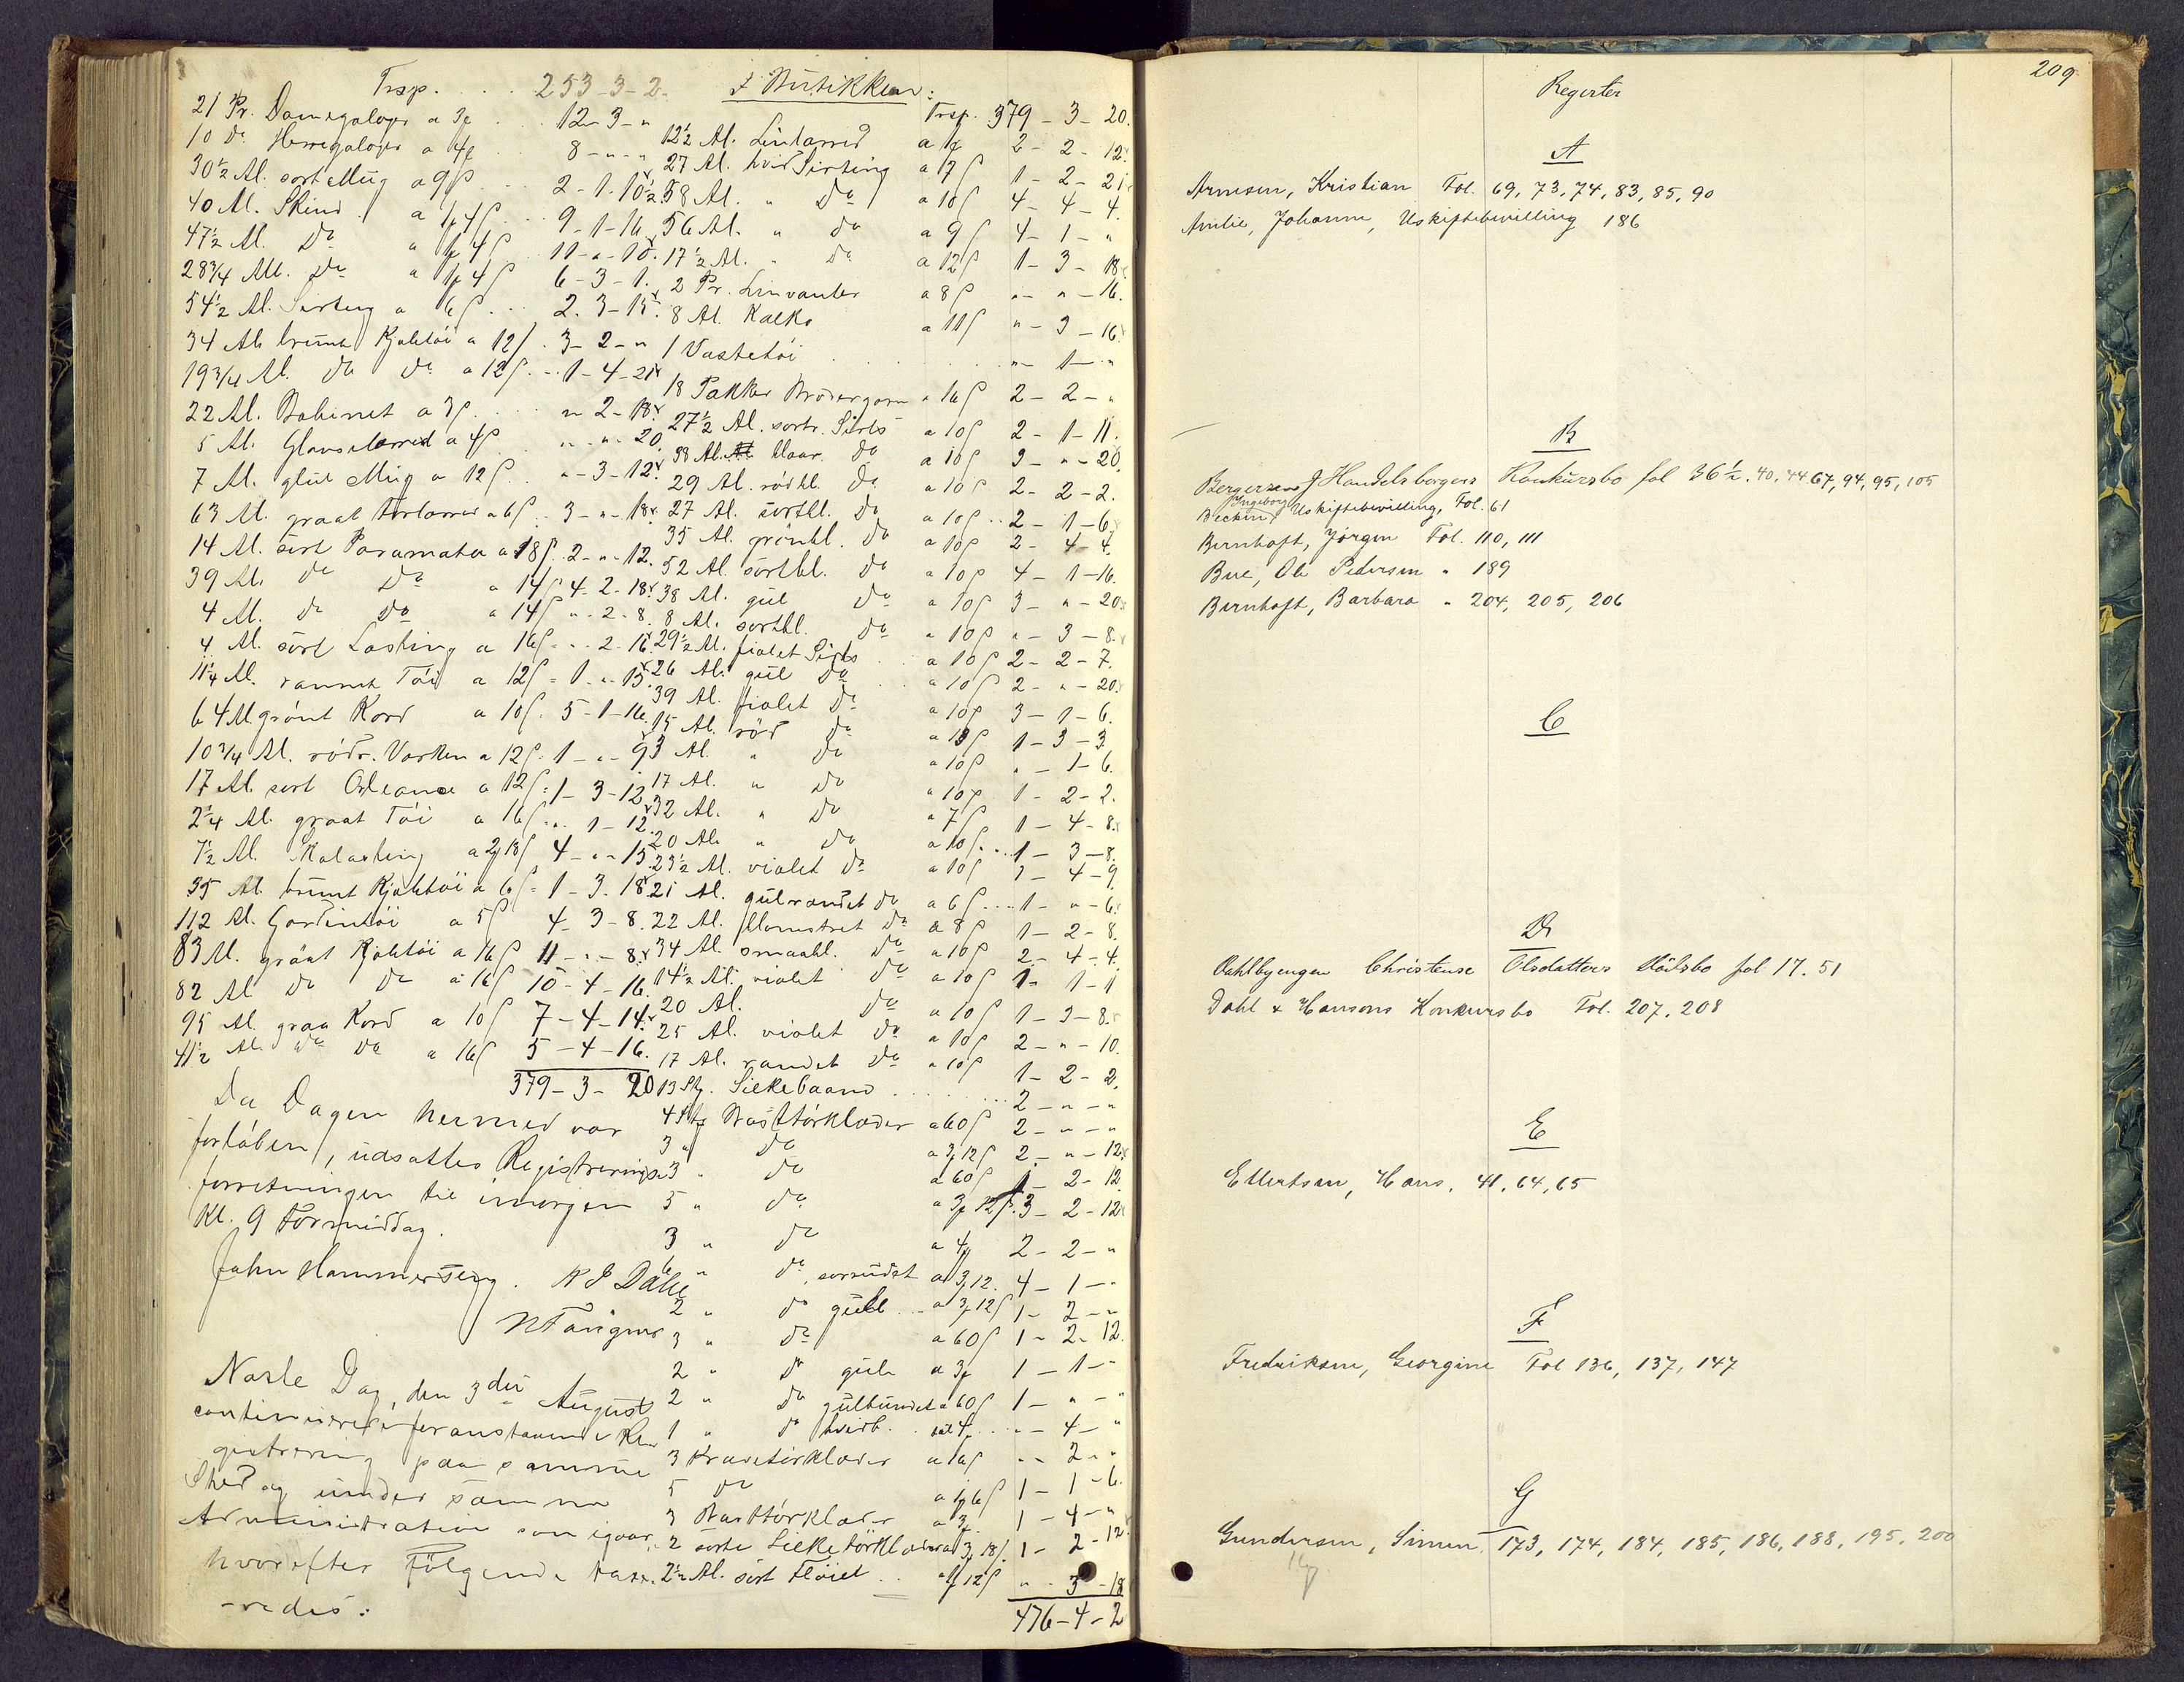 Trsp. . . . 253-3-2.
21 Pr. Damegaloger a 3ƒ . . . 12-3-"
10 do Herregaloger a 4ƒ . . . 8-"-"
30½ Al. sort Mug a 9ß . . . 2-1-10½
40 Al. Skind a 1ƒ 4ß . . . 9-1-16.
47½ Al. Do a 1ƒ 4ß 11-"-10.
28¾ Al. Do a 1ƒ 4ß 6-3-1.
54½ Al. Sirting a 6ß . . . 2.3-15.
34 Al. brunt Kjoletöi a 12ß . 3-2-"
19¾ Al. Do Do a 12ß . . 1-4-21
22 Al. Bobinet a 3ß . . . "-2-18
5 Al. Glanslærred a 4ß . . "-"-20
7 Al. glut Mug a 12ß . . "-3-12
63 Al. graat forlærred a 6ß . 3-"-18
14 Al. sort Paramata a 18ß . 2-"-12.
39 Al. do Do a 14ß 4-2-18
4 Al. do Do a 14ß "-2-8.
4 Al. sort Lasting a 16ß . . 2-16
11¼ Al. rannet Töi a 12ß = 1-"-15
64 Al grönt Kord a 10ß . 5-1-16.
10¾ Al. rödr. Vorken a 12ß . 1-"-9
17 Al. sort Orleance a 12ß = 1-3-12
2¼ Al. graat Töi a 16ß . ". 1-12.
7½ Al. Kalasting a 2ƒ 18ß 4-"-15
35 Al. brunt Kjoletöi a 6ß = 1-3-18
112 Al. Gardintöi a 5ß 4-3-8.
83 Al. grönt Kjoletöi a 16ß 11-"-8.
82 Al Do Do a 16ß 10-4-16.
95 Al. graa Kord a 10ß 7-4-14.
41½ Al. Do Do a 16ß 5-4-16.
379-3-20
Da Dagen hermed var
forløben, udsattes Registrerings
forretningen til imorgen
Kl. 9 Formiddag.
John Hammerseng. N J Dahl
Næste Dag, den 3die August
continueredes foranstaaende Re
gistrering paa samme
Sted og under samme
Administration som igaar,
hvorefter Følgende taxe
redes:
I Butikken:
Trsp. 379-3-20.
12½ Al. Linlærred a 1ƒ 2-2-12.
27 Al. hvid Sirting a 7ß 1-2-21
58 Al. " Do a 10ß 4-4-4.
56 Al. " do a 9ß 4-1-"
17½ Al. " Do a 12ß 1-3-18
2 Pr. Linvanter a 8ß "-"-16.
8 Al. Kalko a 11ß "-3-16
1 Vastetöi . . . "-1-"
18 Pakker Brodergarn a 16ß 2-2-"
27½ Al. sortr. Sirts a 10ß 2-1-11.
38 Al. blaar. do a 10ß 3-"-20.
29 Al. rödbl. Do a 10ß 2-2-2.
27 Al. sortbl. Do a 10ß . . 2-1-6
35 Al. grönbl. do a 10ß 2-4-4.
52 Al. sortbl. do a 10ß 4-1-16.
38 Al. gul Do a 10ß 3-"-20
8 Al. sortbl. do a 10ß "-3-8.
29½ Al. fiolet Sirts a 10ß 2-2-7.
26 Al. gul do a 10ß 2-"-20
39 Al. fiolet do a 10ß 3-1-6.
15 Al. röd do a 13ß 1-3-3
3 Al. " do a 10ß "-1-6.
17 Al. " do a 10ß 1-2-2.
32 Al. " do a 7ß 1-4-8
20 Al. " do a 10ß . . . 1-3-8.
23½ Al. violet do a 10ß 1-4-9
21 Al. gulrandet do a 6ß . . . 1-"-6
22 Al. blomstret do a 8ß 1-2-8.
34 Al. smaabl. do a 10ß 2-4-4.
14½ Al. violet do a 10ß 1-1-1
20 Al. do a 10ß 1-3-8
25 Al. violet do a 10ß 2-"-10.
17 Al. randet do a 10ß 1-2-2.
13 Stk. Silkebaand . . . . . . 2-"-"
4 Stk Bastörklæder a 60ß 2-"-"
3 " do a 3ƒ 12ß 2-"-12
3 " do a 60ß 1-2-12
5 " do a 3ƒ 12ß . 3-2-12
3 " do a 4ƒ 2-2-"
6 " do, sorrudet a 3ƒ 12. 4-1-"
2 " do gult . . a 3ƒ 12ß 1-2-"
3 " do a 60ß 1-2-12.
2 " do gult a 3ƒ 1-1-"
2 " do gulbundet a 60ß 1-"-"
1 " do hvidb. . . 4ƒ . . . "-4-"
3 Kravetörklæder a 16ß "-2-"
5 do a 1ƒ 6ß 1-1-6.
3 Bastörklæder a 3ƒ 1-4-"
2 sorte Silketörklæder a 3ƒ 18ß. 1-2-12
2½ Al. sort Flöiel . . a 1ƒ 12ß "-3-18
476-4-2
209
Register
A
Arnesen, Kristian Fol. 69, 73, 74, 83, 85, 90
Amlie, Johanne, Uskiftebevilling 186
B
Bergersens J Handelsborgers Konkursbo fol 36½. 40, 44 67, 94, 95, 105
Ingeborg
Becken, Uskiftebevilling, Fol. 61
Bernhoft, Jörgen Fol. 110, 111
Bue, Ole Pedersen " 189
Bernhoft, Barbara " 204, 205, 206
C
D
Dahlbyengen Christense Olsdatters Stöilsbo fol 17. 51
Dahl & Hansons Konkursbo Fol. 207, 208
E
Ellertsen, Hans, 41, 64, 65
F
Fredriksen, Georgine Fol 136, 137, 147
G
Gundersen, Simen, 173, 174, 184, 185, 186, 188, 195, 200